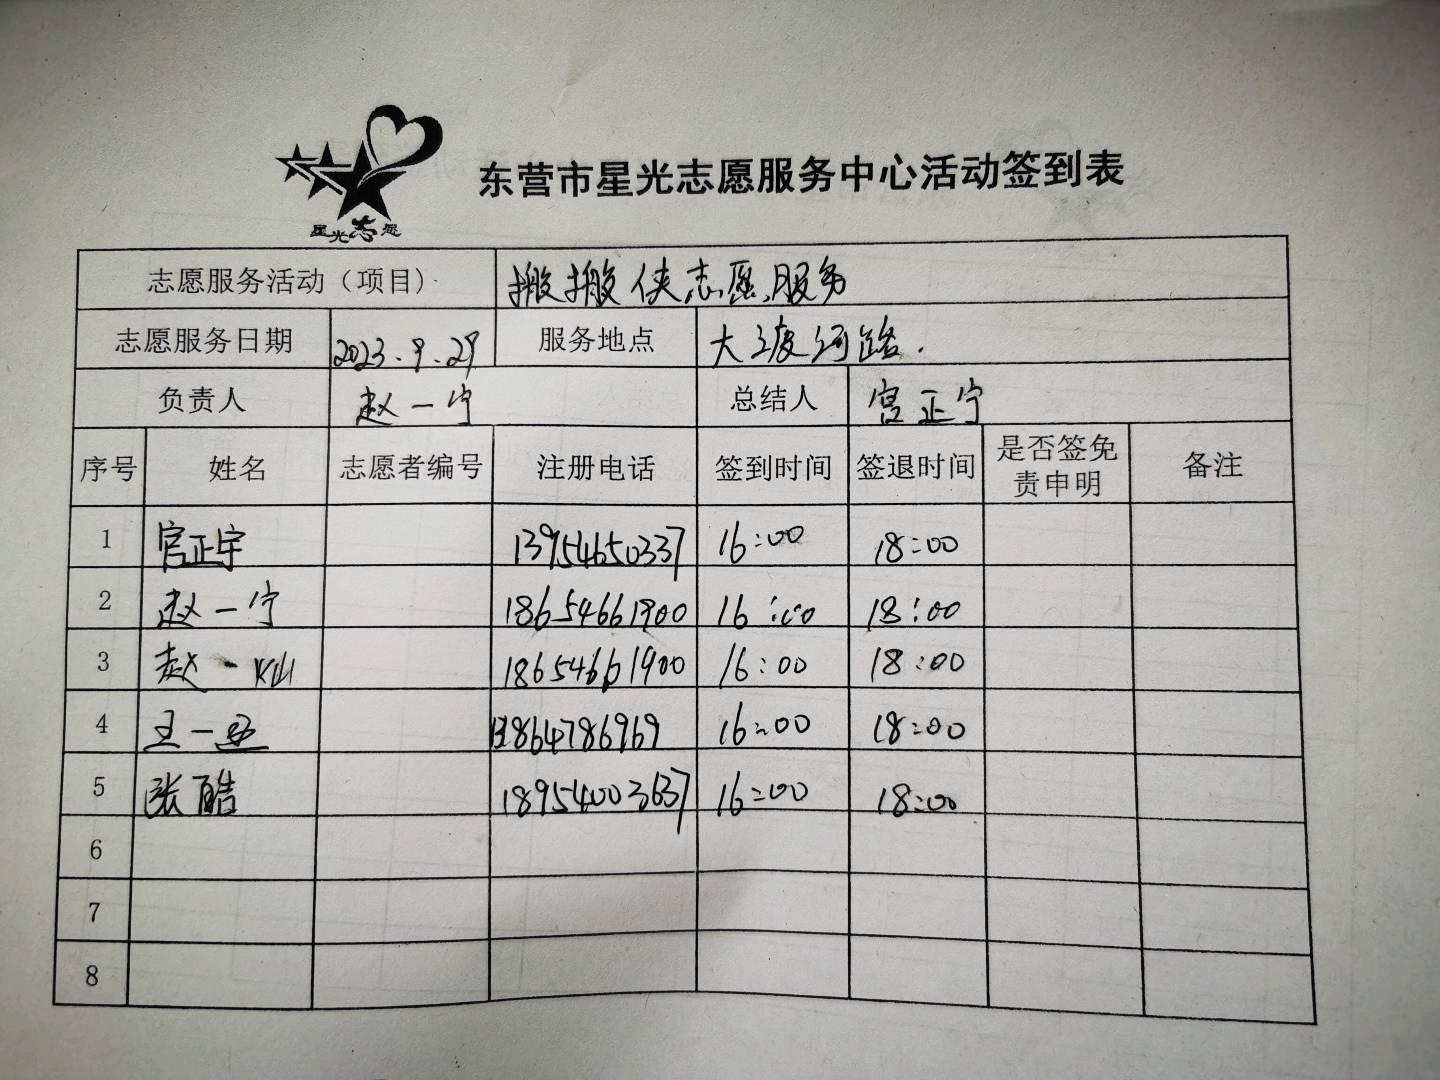 星光志愿
东营市星光志愿服务中心活动签到表
志愿服务活动（项目） 搬搬侠志愿服务
志愿服务日期 2023.9.29 服务地点 大渡河路.
负责人 赵一宁 总结人 宫正宁
序号 姓名 志愿者编号 注册电话 签到时间 签退时间 是否签免责申明 备注
1 宫正宇 13954650337 16:00 18:00
2 赵一宁 18654661900 16:00 18:00
3 赵一 18654661900 16:00 18:00
4 王一 13864786969 16:00 18:00
5 张酷 18954003637 16:00 18:00
6
7
8